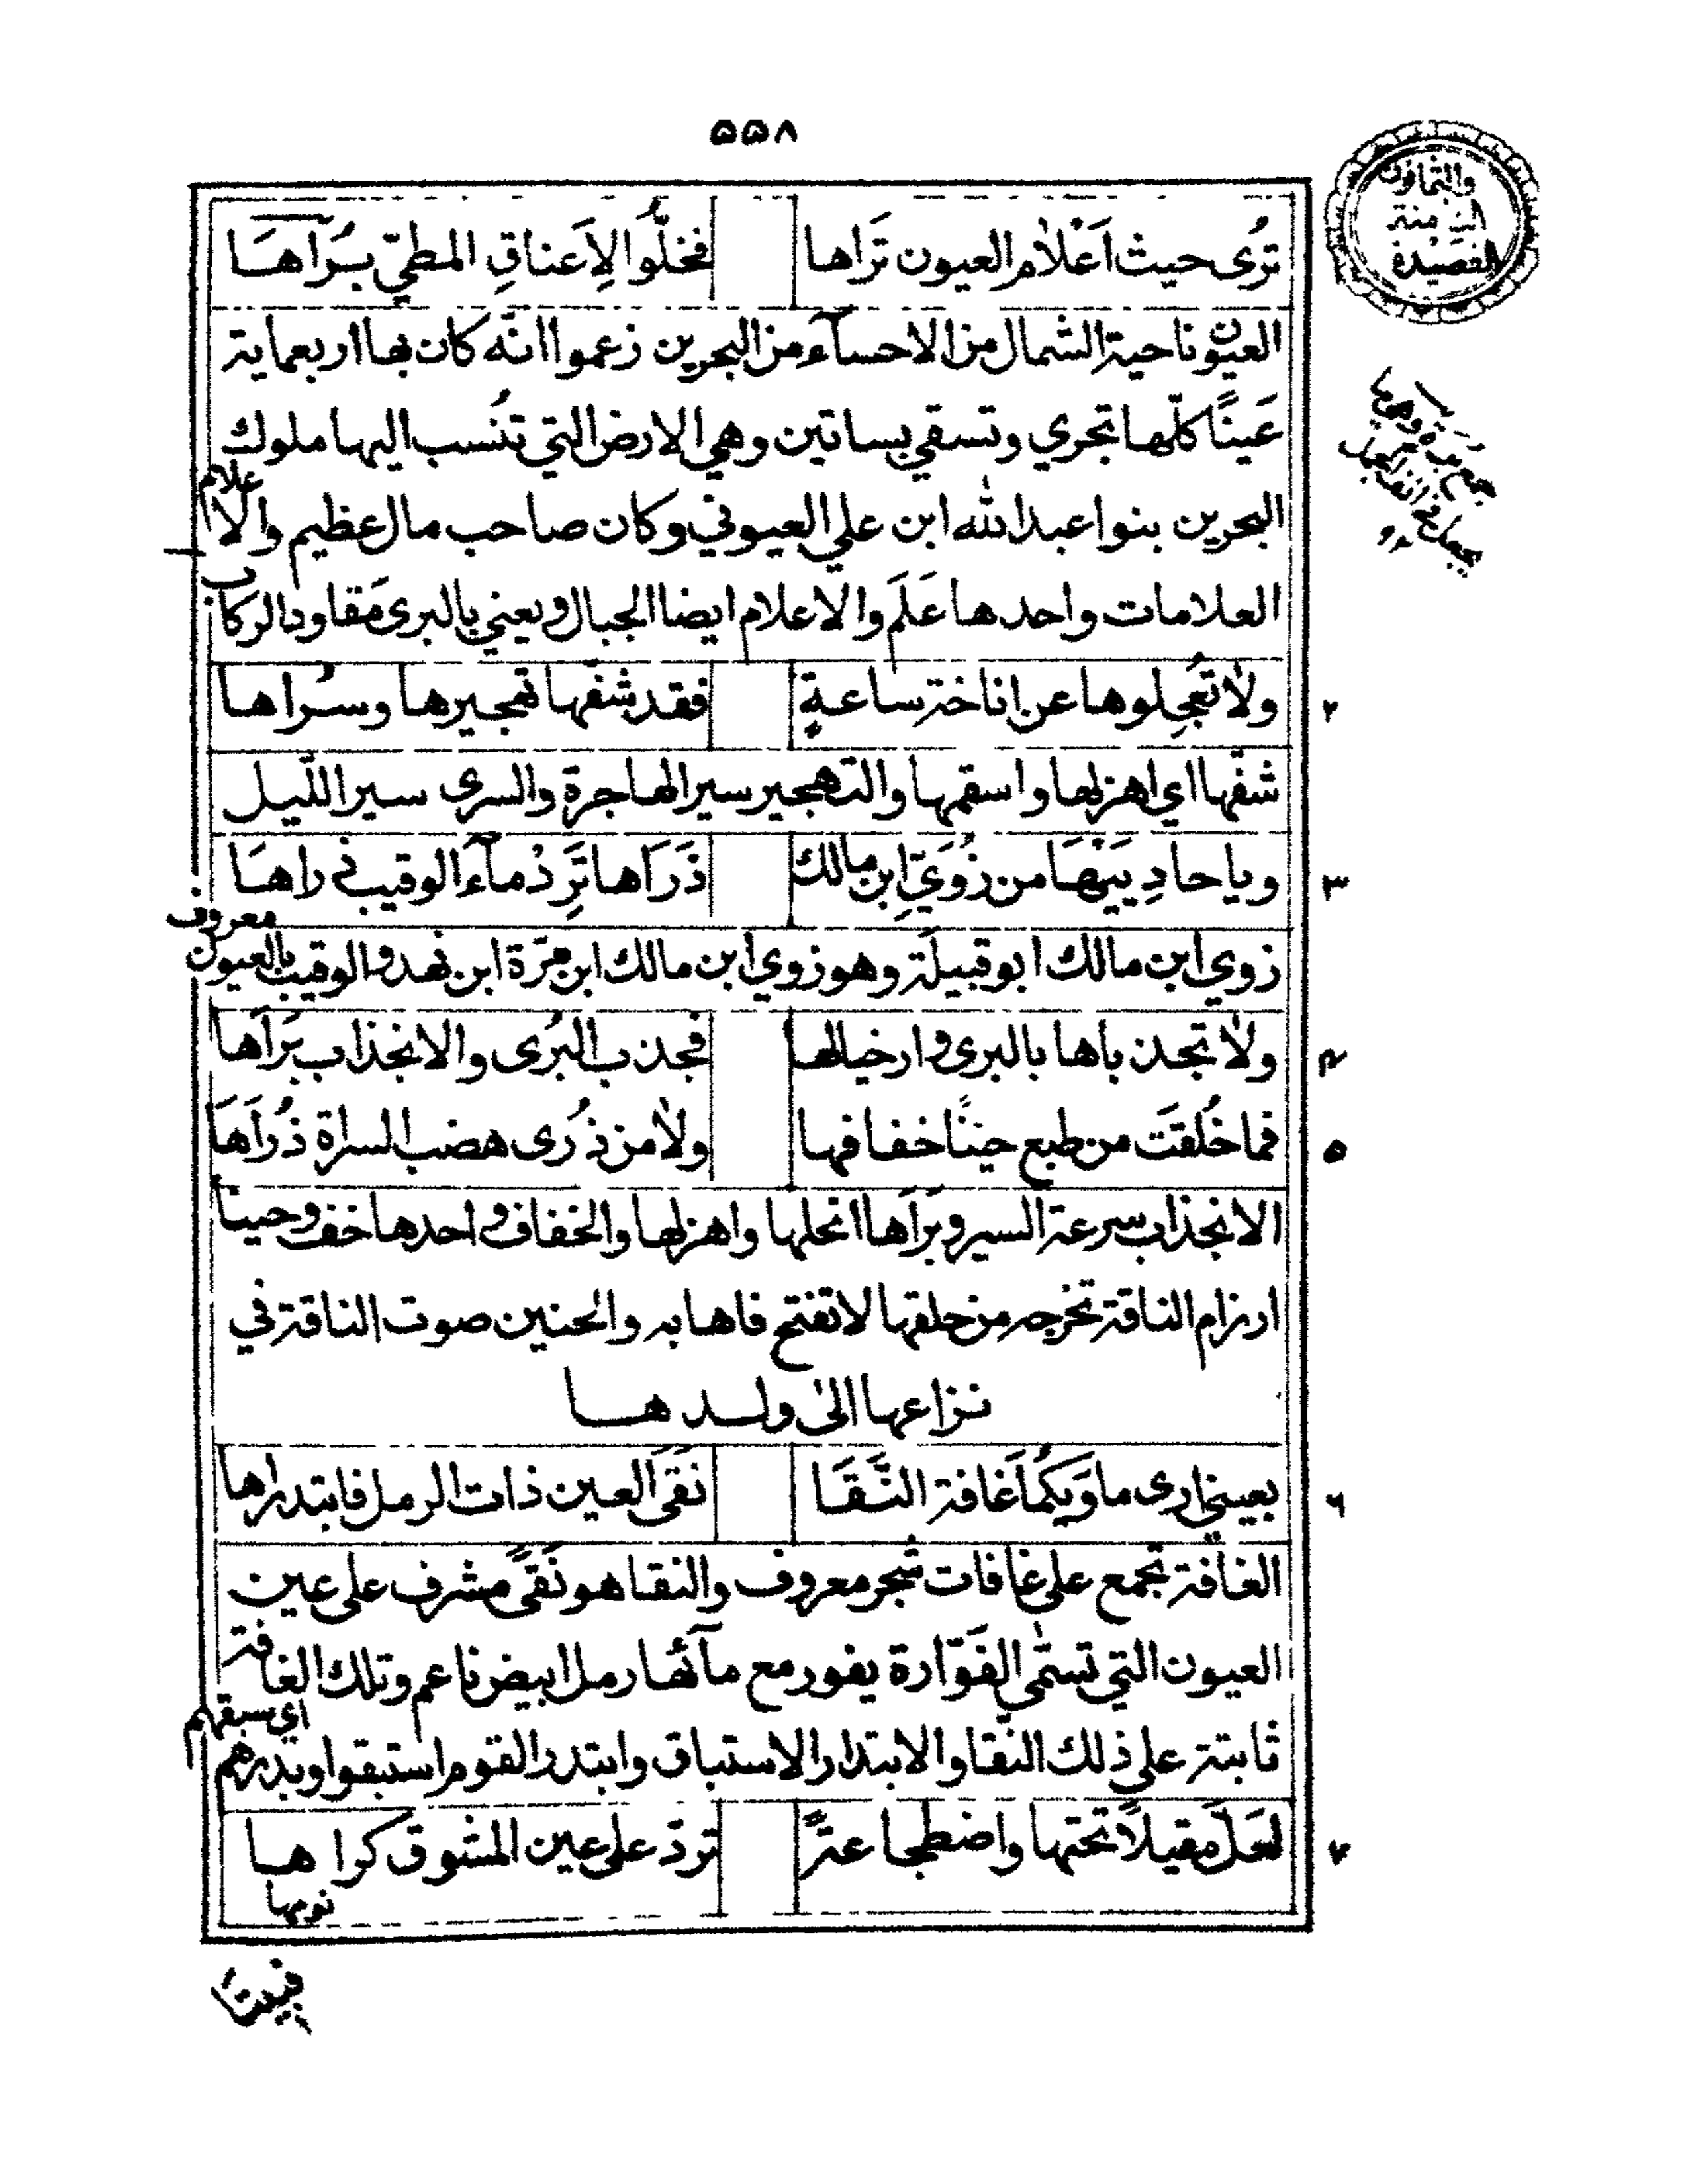 ٥٥٨
والثمانون
القصيدة
تُرى حيث اَعْلام العيون تَراها فخلّوا لِاَعناقِ المطيّ بُرَاهَا
العيون ناحية الشمال من الاحسآء من البحرين زعموا انّه كان بها اربعماية
عَينًا كلّها تجري وتسقي بساتين وهي الارض التي تنُسب اليها ملوك
البحرين بنوا عبد الله ابن علي العيوني وكان صاحب مال عظيم والاعلام
العلامات واحدها عَلَم والاعلام ايضا الجبال ويعني بالبرى مَقاود الركاب
٢ ولا تُعجِلوها عن اناخة ساعةٍ فقد شفّها تهجيرها وسُراها
شفّها اي اهزلها واسقمها والتهجير سير الهاجرة والسرى سير اللّيل
٣ ويا حادِيَيْهَا من زُوَيِّ ابن مالك ذَرَاها تَرِدْ مآء الوقيب ذراهَا
زوي ابن مالك ابو قبيلة وهو زوي ابن مالك ابن مرّة ابن نهد والوقيب بالعيون معروف
٤ ولا تجذباها بالبرى وارخيا لها فجذب البُرى والانجذاب بَرَاها
٥ فما خُلقَت من طبع حينًا خفافها ولا من ذُرى هضب السراة ذُرَاهَا
الانجذاب سرعة السير وبَرَاها انحلها واهزلها والخفاف واحدها خف وحينا
ارزام الناقة تخرجه من حلقها لا تفتح فاها به والحنين صوت الناقة في
نزاعها الى ولدها
٦ بعيني ارى ماوَيكُما غافة النَّقَا نَقَى العين ذات الرمل فابتدراها
الغافة تجمع على غافات شجر معروف والنقا هو نَقىً مشرف على عين
العيون التي تسمّى الفَوّارة يفور مع مآئها رمل ابيض ناعم وتلك الغافة
ثابتة على ذلك النقا والابتدار الاستباق وابتدر القوم استبقوا وبدرهم اي سبقهم
٧ لعَلّ مقيلاً تحتها واضطجاعةً تردّ على عين المشوق كراها
نومها